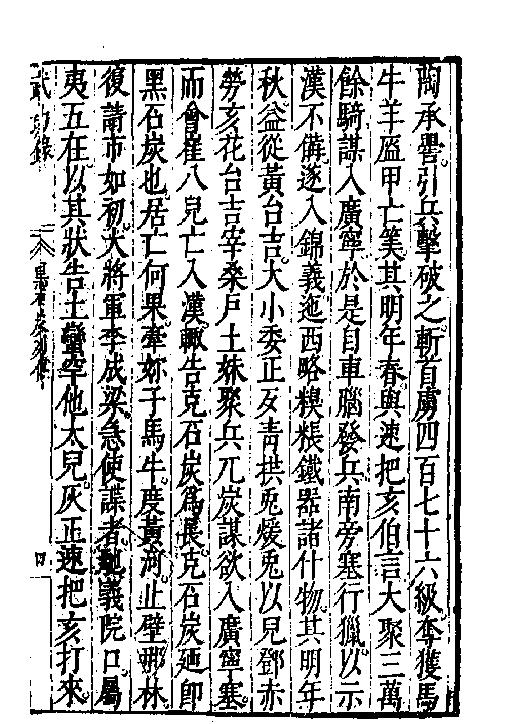 陶承嚳引兵擊破之斬首虜四百七十六級奪獲馬
牛羊盔甲亡筭其明年春與速把亥伯言大聚三萬
餘騎謀入廣寧於是自車腦發兵南旁塞行獵以示
漢不備遂入錦義迤西略糗粻鐵器諸什物其明年
秋益從黃台吉大小委正歹青拱兎煖兎以兒鄧赤
勞亥花台吉宰桑戶土妹聚兵兀炭謀欲入廣寧塞
而會崔八兒亡入漢輙告克石炭爲長克石炭廼即
黑石炭也居亡何果牽妳子馬牛度黃河止壁哪林
復請市如初大將軍李成梁急使諜者魁義院口屬
夷五在以其狀告土蠻罕他太兒灰正速把亥打來
武功錄 黑石炭列傳 四